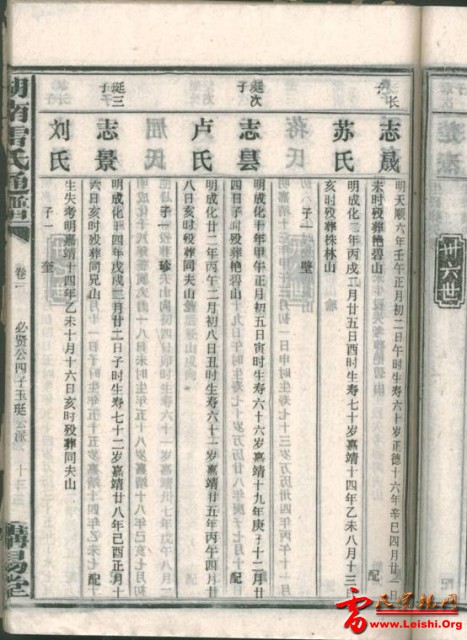 长子
志晟
明天顺六年壬午正月初二日午时生寿六十岁正德十六年辛巳四月廿一
未时殁葬艳碧山 配
苏氏
明成化二年丙戌二月廿五日酉时生寿七十岁嘉靖十四年乙未八月十三
亥时殁葬株林山
子一 璧
廷次子
志昙
明成化十年甲午正月初五日寅时生寿六十六岁嘉靖十九年庚子十二月廿
四日子时殁葬艳碧山 配
卢氏
明成化廿二年丙午二月初八日丑时生寿六十一岁嘉靖廿五年丙午四月廿
八日亥时殁葬同夫山
子一 珍
廷三子
志景
明成化十四年戊戌二月廿二日子时生寿七十二岁嘉靖廿八年己酉正月十
六日亥时殁葬同兄山 配
刘氏
生失考明嘉靖十四年乙未十月十六日亥时殁葬同夫山
子一 奎
湖南雷氏通谱
卷一
必贤公四子玉廷公派
讲易堂
卅六世
雷氏宗亲网
www.Leishi.Org